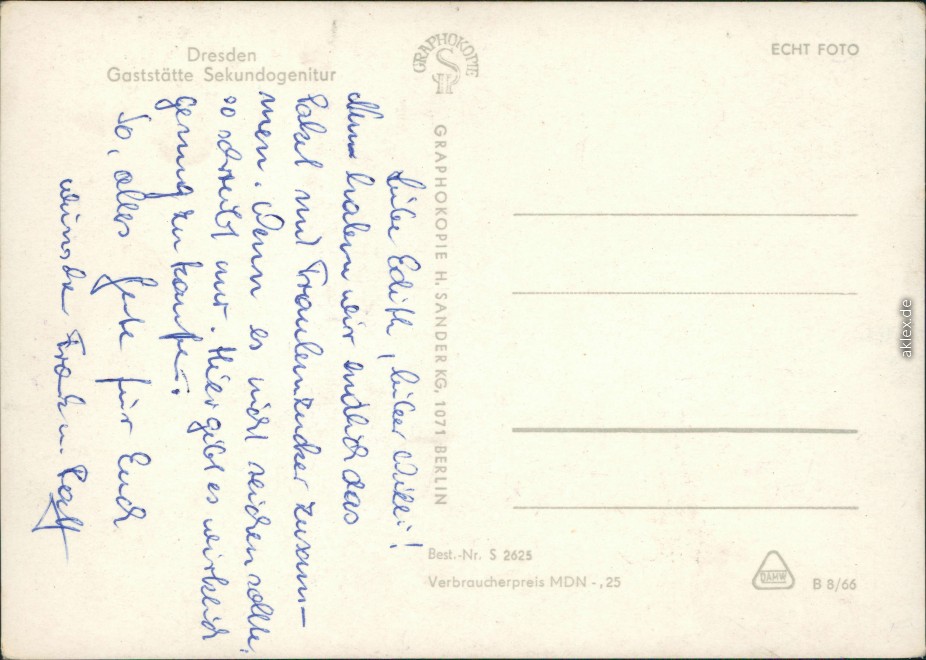 Dresden
Gaststätte Sekundogenitur
Liebe Edith, lieber Willi!
Nun haben wir endlich das
Paket mit Traubenzucker zusam-
men. Wenn es nicht reichen sollte,
so schreibt nur. Hier gibt es wirklich
genug zu kaufen.
So, alles Gute für Euch
wünschen u. Ralf
GRAPHOKOPIE
GRAPHOKOPIE H. SANDER KG, 1071 BERLIN
ECHT FOTO
Best.-Nr. S 2625
Verbraucherpreis MDN -,25
DAMW
B 8/66
aklex.de